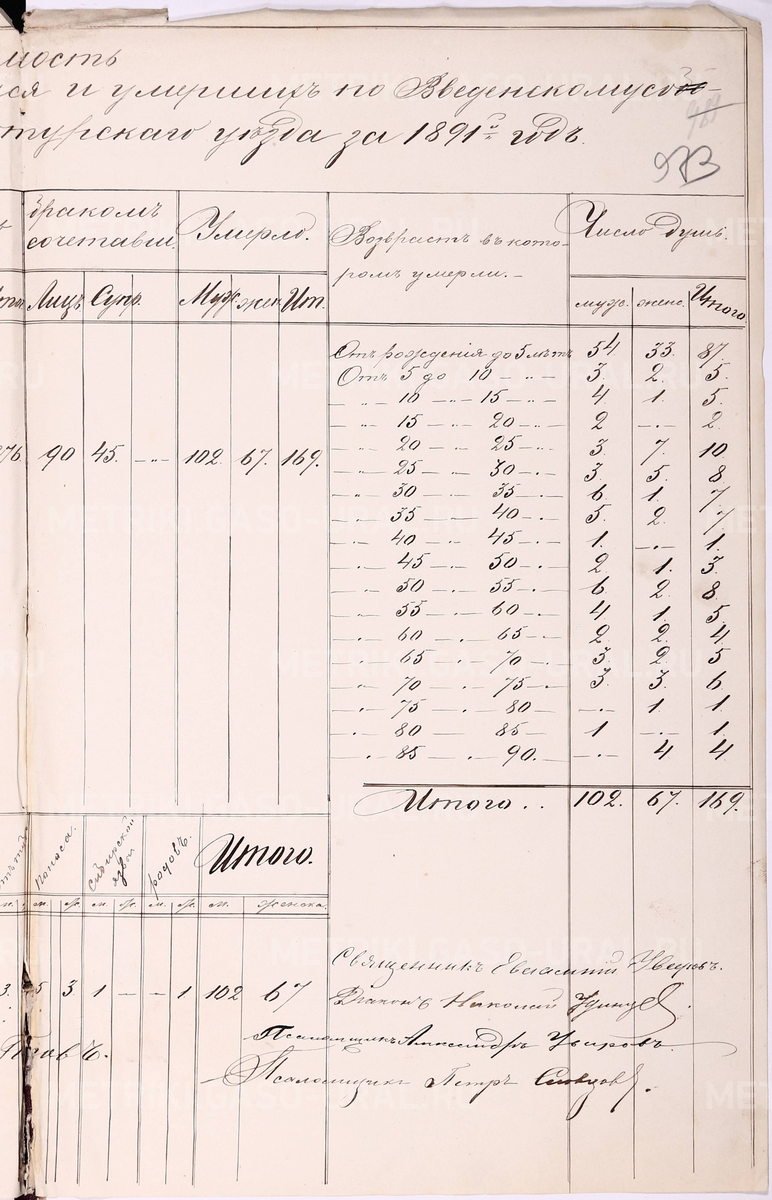 мость
ся и умершихъ по Введенскому
турскаго уѣзда за 1891й годъ.
973
бракомъ Умерло. Возврастъ въ кото- Число душъ.
сочетавш. ромъ умерли.-
Лицъ Супр. Муж. жен. Ит. муж. женс. Итого
Отъ рожденія до 5 лѣтъ 54. 33. 87.
Отъ 5 до 10 - „ - 3. 2. 5.
- „ - 10 - „ - 15 - „ - 4 1. 5.
- „ - 15 - „ - 20 - „ - 2 - „ - 2.
- „ - 20 - „ - 25 - „ - 3. 7. 10
276. 90 45. - „ - 102. 67. 169.
- „ - 25 - „ - 30 - „ - 3. 5. 8.
- „ - 30 - „ - 35 - „ - 6. 1. 7
- „ - 35 - „ - 40 - „ - 5. 2. 7.
- „ - 40 - „ - 45 - „ - 1. - „ - 1.
- „ - 45 - „ - 50 - „ - 2 1. 3.
- „ - 50 - „ - 55 - „ - 6 2 8.
- „ - 55 - „ - 60 - „ - 4 1. 5.
- „ - 60 - „ - 65 - „ - 2 2. 4
- „ - 65 - „ - 70 - „ - 3. 2. 5
- „ - 70 - „ - 75 - „ - 3. 3. 6
- „ - 75 - „ - 80 - „ - 1. 1
- „ - 80 - „ - 85 - 1 - „ - 1.
- „ - 85 - „ - 90. - „ - 4 4
Итого.. 102. 67. 169.
поноса. Сибирской язвы родовъ. Итого.
м. ж. м. ж. м. ж. м. женска.
3. 5 3 1 - - 1 102 67
Священникъ Евгаѳій Увѣровъ.
Діаконъ Николай Удинцев.
Псаломщикъ Александръ
Псаломщикъ Петръ Словцовъ.